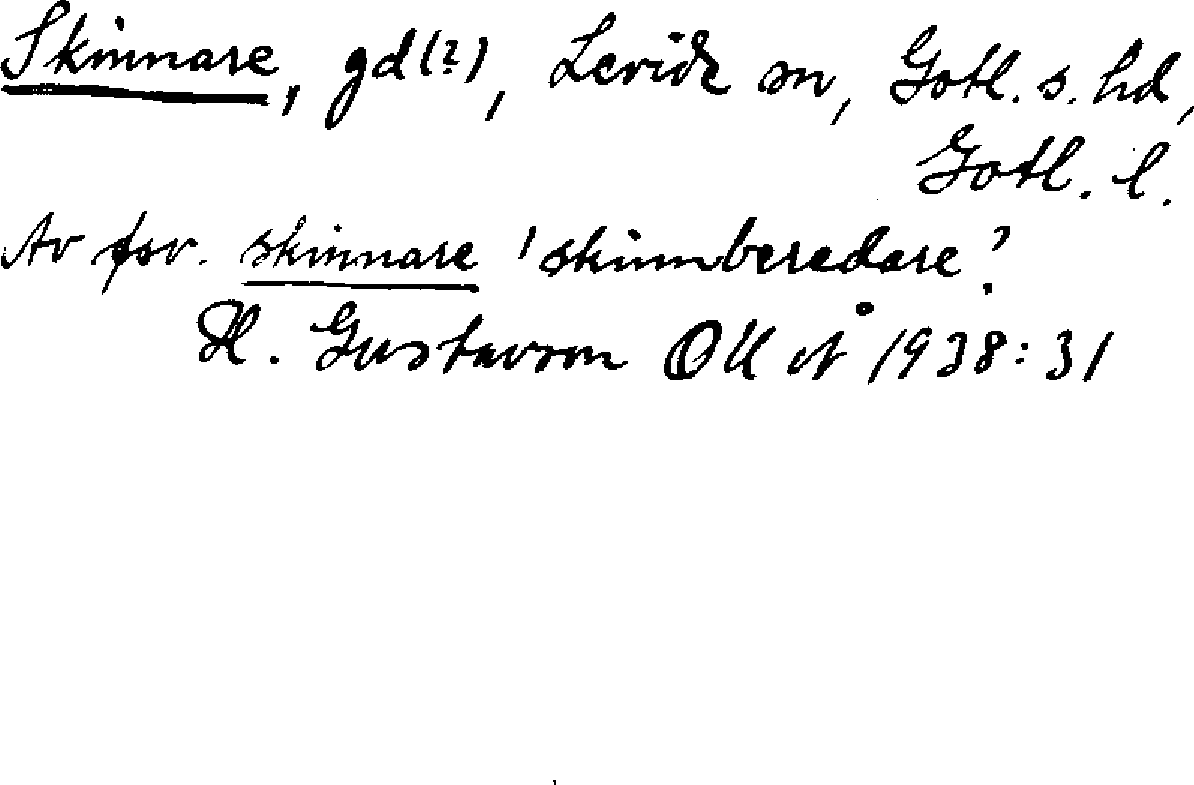 Skinnare, gd(?), Levide sn, Gotl. s. hd,
Gotl. l.
Av fsv. skinnare 'skinnberedare'.
H. Gustavson OUÅ 1938:31